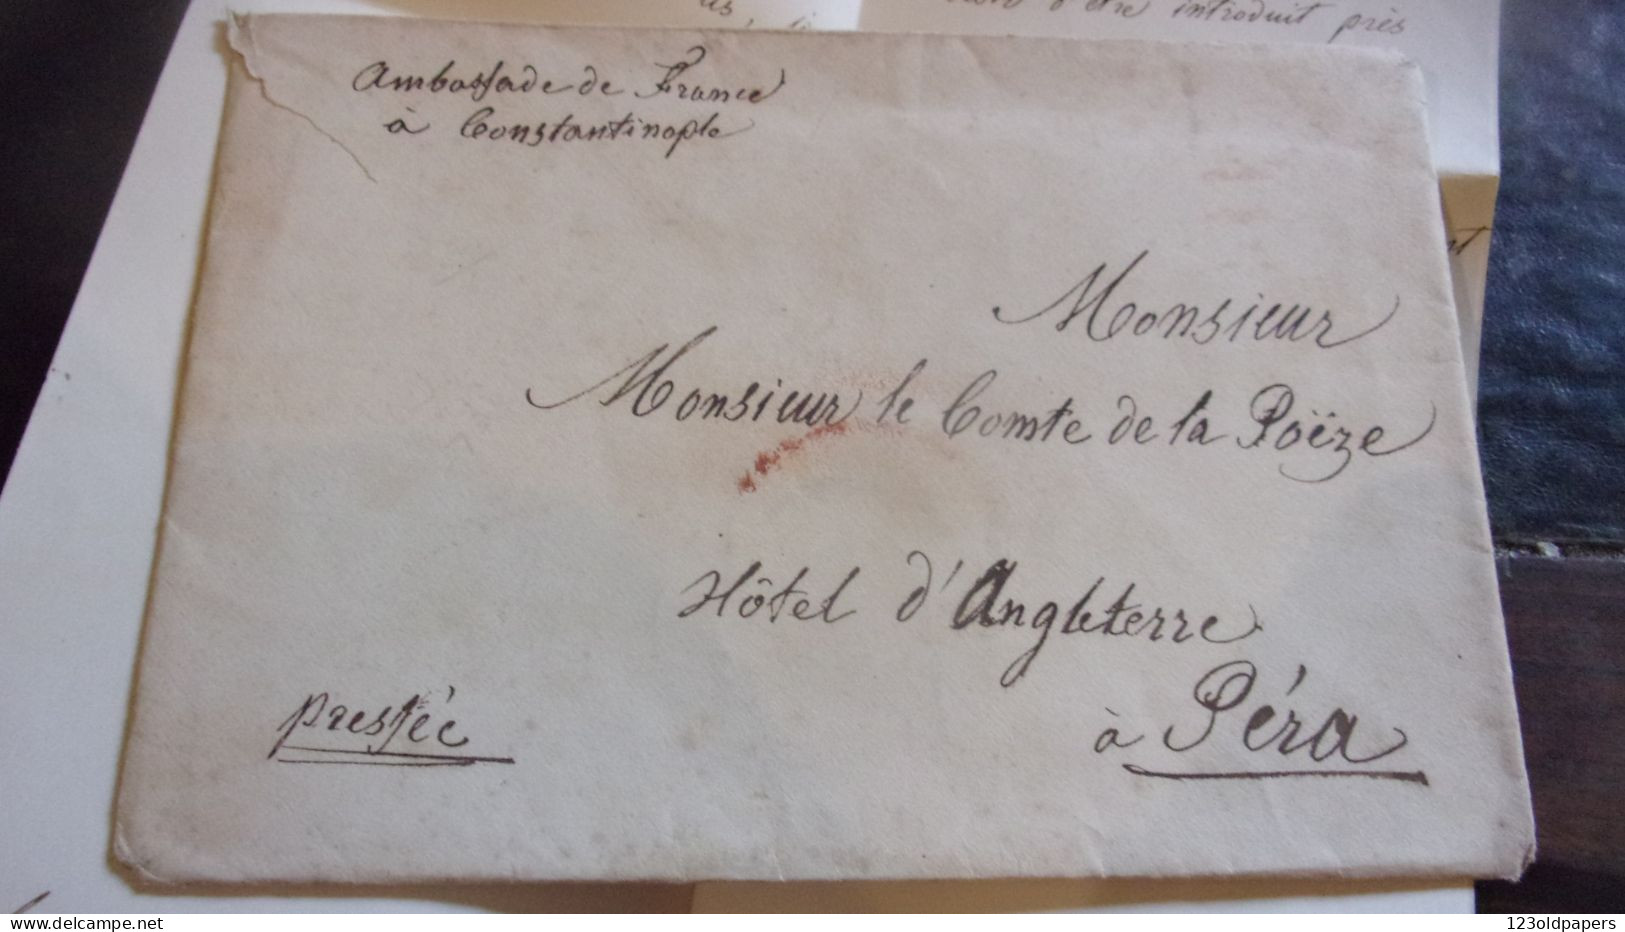 d'être introduit près
Ambassade de France
à Constantinople
Monsieur
Monsieur le Comte de la Poëze
Hôtel d'Angleterre
à Péra
pressée
delcampe.net
123oldpapers